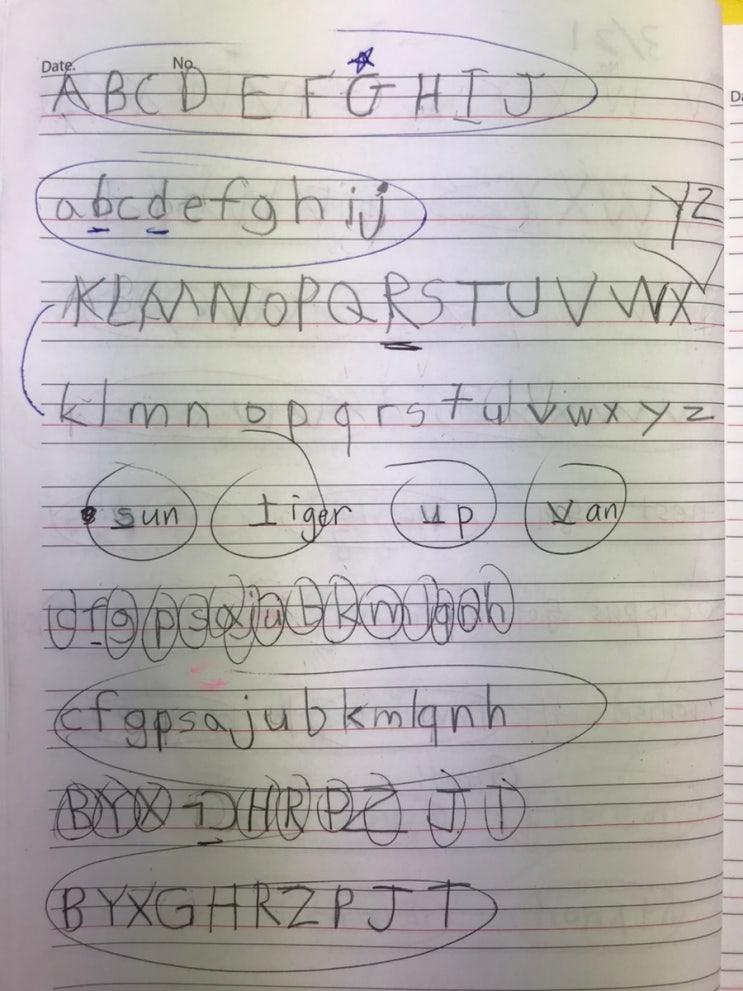 Date. No.
A B C D E F G H I J
a b c d e f g h i j
Y Z
K L M N O P Q R S T U V W X
k l m n o p q r s t u v w x y z
sun tiger up van
c f g p s a j u b k m l q n h
c f g p s a j u b k m l q n h
B Y X G H R P Z J T
B Y X G H R Z P J T